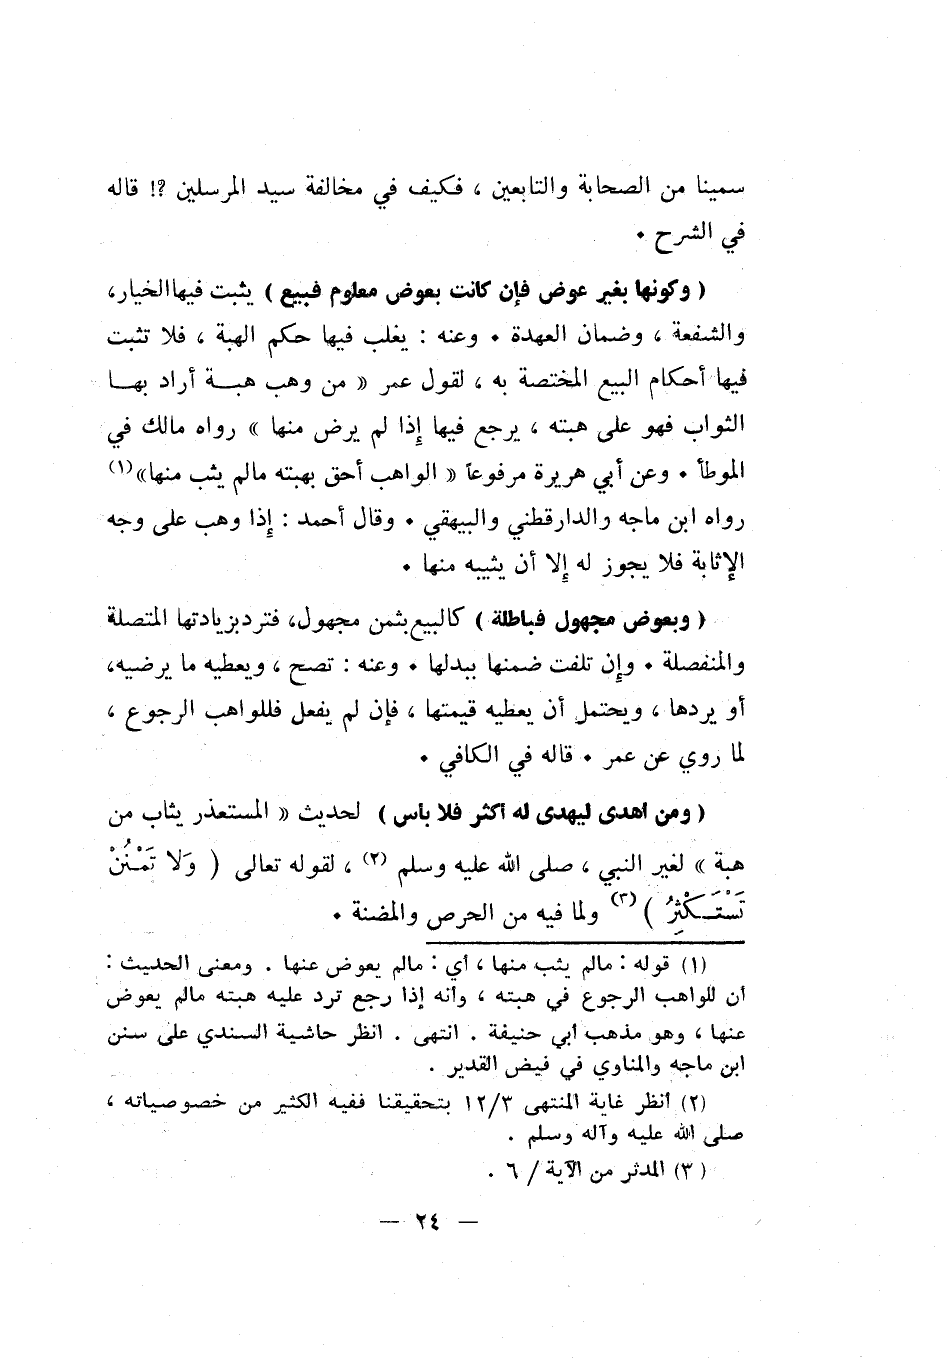 سمينا من الصحابة والتابعين ، فكيف في مخالفة سيد المرسلين ?! قاله
في الشرح •
( وكونها بغير عوض فإن كانت بعوض معلوم فبيع ) يثبت فيها الخيار،
والشفعة ، وضمان العهدة • وعنه : يغلب فيها حكم الهبة ، فلا تثبت
فيها أحكام البيع المختصة به ، لقول عمر « من وهب هبـــة أراد بهــا
الثواب فهو على هبته ، يرجع فيها إذا لم يرض منها » رواه مالك في
الموطأ • وعن أبي هريرة مرفوعاً « الواهب أحق بهبته مالم يثب منها»(١)
رواه ابن ماجه والدارقطني والبيهقي • وقال أحمد : إذا وهب على وجه
الإثابة فلا يجوز له إلا أن يثيبه منها •
( وبعوض مجهول فباطلة ) كالبيع بثمن مجهول، فترد بزيادتها المتصلة
والمنفصلة • وإن تلفت ضمنها ببدلها • وعنه : تصح ، ويعطيه ما يرضيه،
أو يردها ، ويحتمل أن يعطيه قيمتها ، فإن لم يفعل فللواهب الرجوع ،
لما روي عن عمر • قاله في الكافي •
( ومن أهدى ليهدى له أكثر فلا بأس ) لحديث « المستعذر يثاب من
هبة » لغير النبي ، صلى الله عليه وسلم (٢) ، لقوله تعالى ( وَلَا تَمْنُنْ
تَسْتَــكْثِرُ ) (٣) ولما فيه من الحرص والمضنة •
(١) قوله : مالم يثب منها ، أي : مالم يعوض عنها . ومعنى الحديث :
أن للواهب الرجوع في هبته ، وأنه إذا رجع ترد عليه هبته مالم يعوض
عنها ، وهو مذهب أبي حنيفة . انتهى . انظر حاشية السندي على سنن
ابن ماجه والمناوي في فيض القدير .
(٢) أنظر غاية المنتهى ١٢/٣ بتحقيقنا ففيه الكثير من خصوصياته ،
صلى الله عليه وآله وسلم .
( ٣) المدثر من الآية / ٦ .
— ٢٤ —